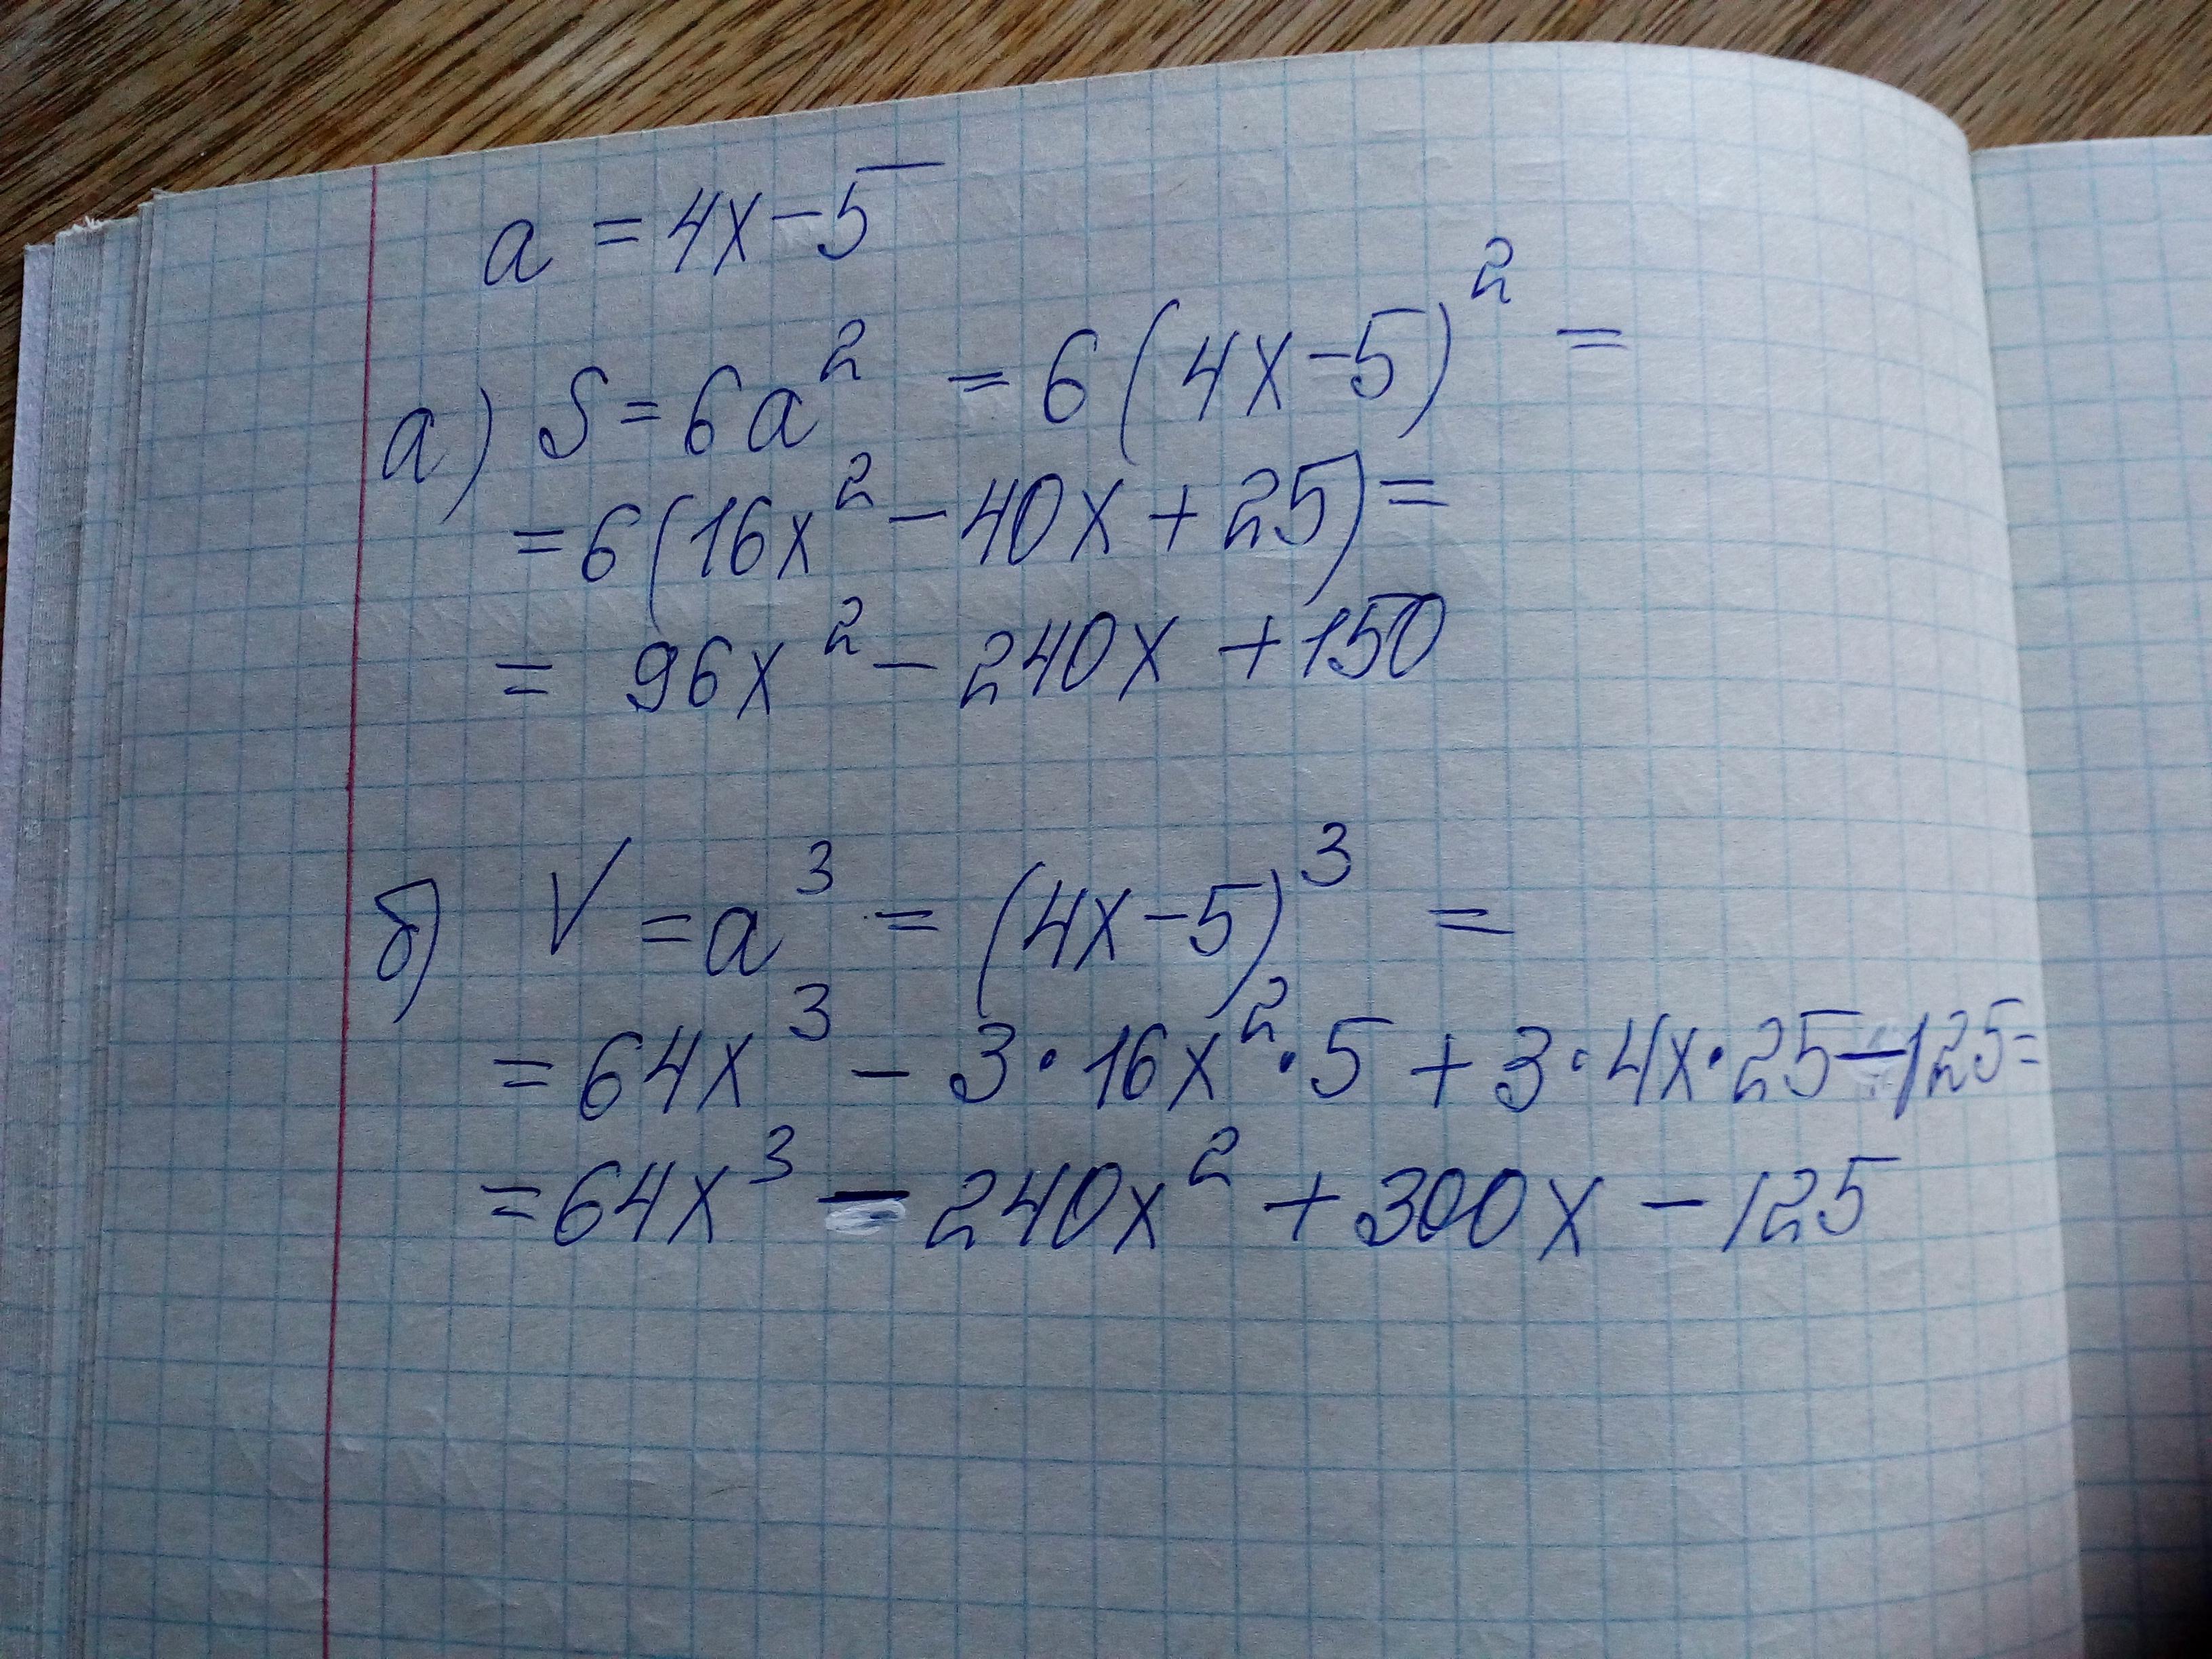 a = 4x - 5
а) S = 6a² = 6(4x - 5)² =
= 6(16x² - 40x + 25) =
= 96x² - 240x + 150
б) V = a³ = (4x - 5)³ =
= 64x³ - 3·16x²·5 + 3·4x·25 - 125 =
= 64x³ - 240x² + 300x - 125